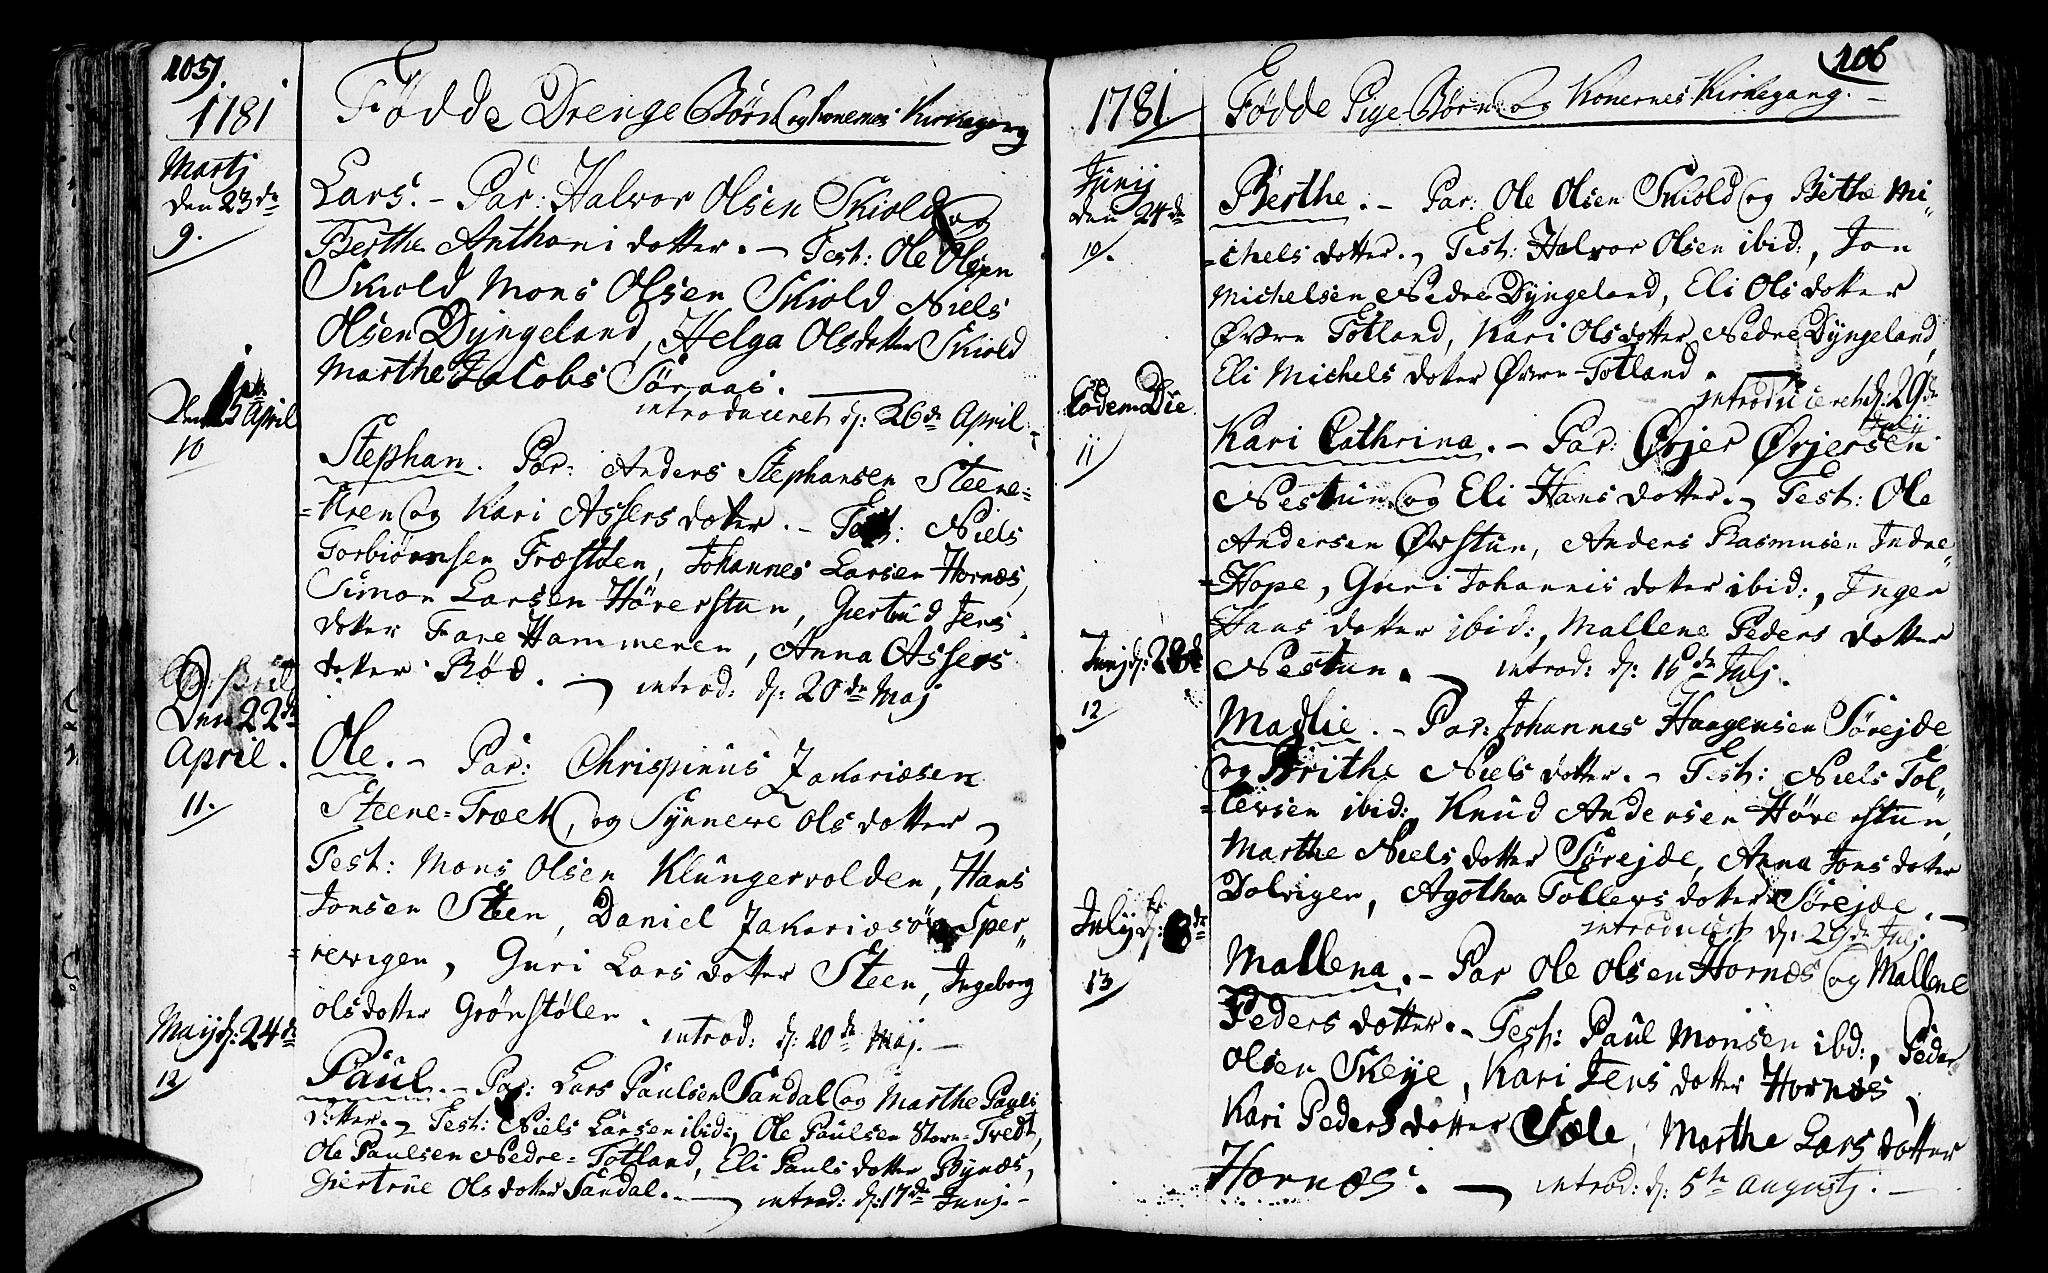 105.
1781
Fødde Drenge Børn og Konernes Kirkegang
Martj
den 23de
9.
Lars. - Par: Halvor Olsen Skiold og
Berthe Anthoni dotter. - Test: Ole Olsen
Skiold Mons Olsen Skiold Niels
Olsen Dyngeland, Helga Olsdotter Skiold
Marthe Jacobs Søraas.
introduceret d: 26de April
April
10
Stephan. Par: Anders Stephansen Steene=
=Kren og Kari Assers dotter. - Test: Niels
Torbiørnsen Træstøen, Johannes Larsen Hornæs,
Simon Larsen Høverstun, Giertrud Jens
dotter Fane Hammeren, Anna Assers
dotter Rød. - introd: d: 20de Maj
Den 22de
April.
11.
Ole. - Par: Chrispinus Zakariæsen
Steene-Træet, og Synneve Olsdotter
Test: Mons Olsen Klungervolden, Hans
Jonsen Steen, Daniel Zakariæsøn Sper"
=revigen, Guri Lars dotter Steen, Ingeborg
Olsdotter Grønstølen.
introd: d: 20de Maj. -
Maij d: 24de
12
Paul. - Par: Lars Paulsen Sandal og Marthe Pauls
dotter. - Test: Niels Larsen ibid:, Ole Paulsen Store-Tvedt,
Ole Paulsen Nedre=Totland, Eli Pauls dotter Bynæs,
Giertrue Olsdotter Sandal. - introd: d: 17de Junj. -
106
1781.
Fødde Pige Børn og Konernes Kirkegang. -
Junij
den 24de
10.
Berthe. - Par: Ole Olsen Skiold og Berthe Mi"
=chels dotter. - Test: Halvor Olsen ibid:, Jon
Michelsen Nedre Dyngeland, Eli Olsdotter
Øvre Totland, Kari Olsdotter Nedre Dyngeland,
Eli Michels dotter Øvre-Totland. -
introduceret d: 29de
Julij
Eodem Die
11
Kari Cathrina. - Par: Ørjer Ørjersen
Nestun og Eli Hans dotter. - Test: Ole
Andersen Øvstun, Anders Rasmusen Indre"
=Hope, Guri Johannis dotter ibid:, Inger
Hans dotter ibid:, Mallene Peders dotter
Nestun. - introd: d: 15de Julj.
Junj d:
12
Madlie. - Par: Johannes Haagensen Sørejde
og Brithe Niels dotter. - Test: Niels Tol"
=levsen ibid:, Knud Andersen Høverstun,
Marthe Niels dotter Sørejde, Anna Jons dotter
Dolvigen, Agotha Tollevs dotter Sørejde. -
introducert d: 29de Julj
Julij d: 8de
13
Mallena. - Par Ole Olsen Hornæs og Mallene
Peders dotter. - Test: Paul Monsen ibd:, Peder
Olsen Skeye, Kari Jens dotter Hornæs,
Kari Peders dotter Sæle, Marthe Lars dotter
Hornæs. - introd: d: 5te Augustj. -